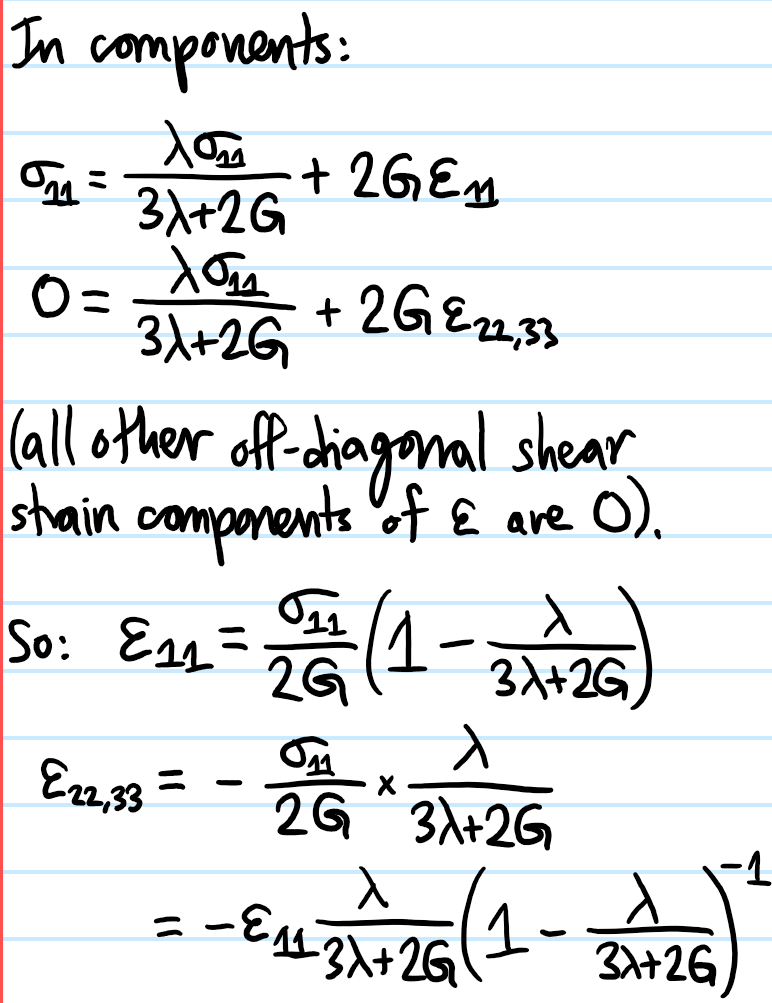 In components:
σ₁₁ = λσ₁₁/(3λ+2G) + 2Gε₁₁
0 = λσ₁₁/(3λ+2G) + 2Gε₂₂,₃₃
(all other off-diagonal shear
strain components of ε are 0).
So: ε₁₁ = σ₁₁/2G (1 - λ/(3λ+2G))
ε₂₂,₃₃ = - σ₁₁/2G × λ/(3λ+2G)
= -ε₁₁ λ/(3λ+2G) (1 - λ/(3λ+2G))⁻¹